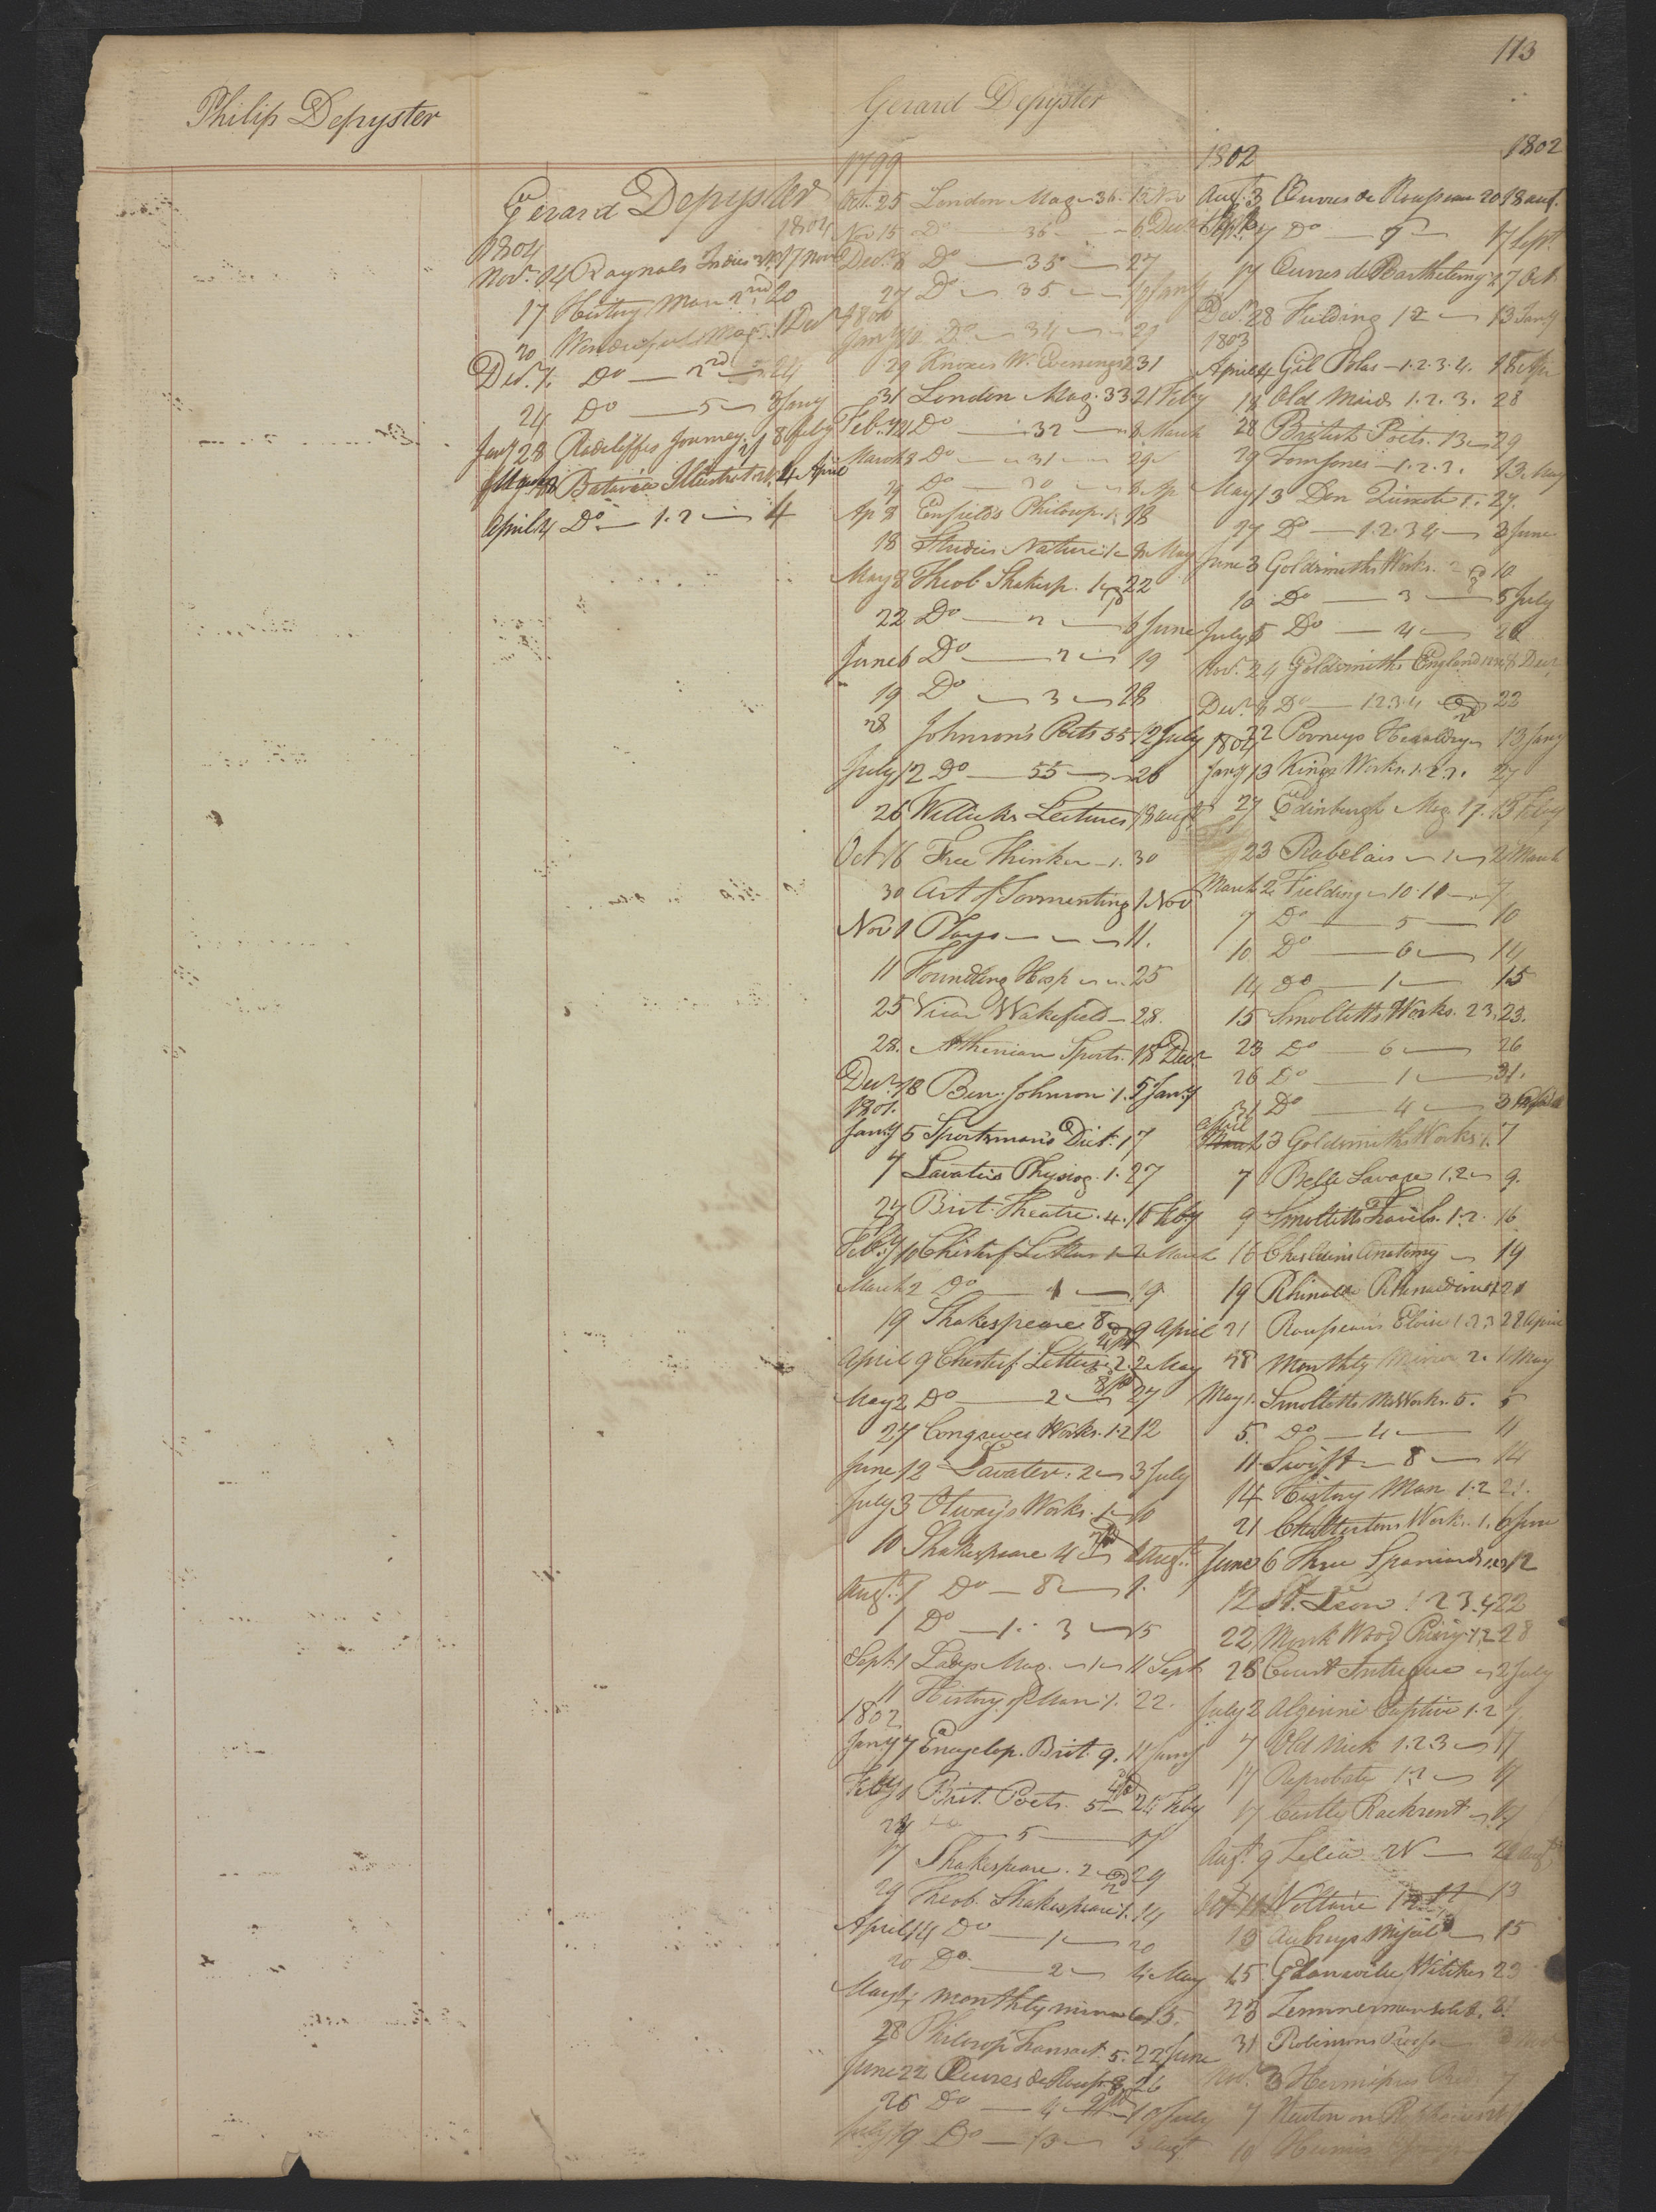 113
Philip Depyster
Gerard Depyster
Gerard Depyster
1804 1804
Novr. 14 Raynals Indies 17 Novr
17 History Man 2nd 20
20 Wonderful Mag. 1 Decr
Decr. 1. Do — 2nd — 24
24 Do — 5 — 8 Jany
Jany 28 Radcliffes Journey. 8 July
Batavia Illustrat. 4 April
April 4 Do — 1.2 — 4
1799
Oct. 25 London Mag. 36. 15 Nov
Nov 15 Do — 36 — 6 Decr
Decr. 6 Do — 35 — 27
27 Do — 35 — Jany
1800
Jany Do — 34 — 29
29 Knoxes W. Evenings 2 31
31 London Mag. 33 21 Feby
Feb. 21 Do — 32 — March
March 3 Do — 31 — 29
29 Do — 30 — 8 Ap
Ap 8 Enfield's Philosop. 1. 18
18 Studies Nature 1 — 8 May
May 8 Theob. Shakesp. 1 — 22
22 Do — 2 — 6 June
June 6 Do — 2 — 19
19 Do — 3 — 28
28 Johnson's Poets 55 12 July
July 12 Do — 55 — 26
26 Willichs Lectures 18 augt
Oct 16 Free Thinker — 1. 30
30 Art of Tormenting 1 Nov
Nov 1 Plays — — — 11.
11 Foundling Hosp — 25
25 Vicar Wakefield — 28.
28. Athenian Sports. 18 Decr
Decr. 18 Ben. Johnson 1. 5 Jany
1801.
Jany 5 Sportsman's Dict. 1 7
7 Lavater's Physiog. 1. 27
27 Brit. Theatre. 4. 10 Feby
Feby 10 Chesterf. Letters 1 2 March
March 2 Do — 1 — 19
19 Shakespeare 8 — 9 April
April 9 Chesterf. Letters 2. 2 May
May 2 Do — 2 — 27
27 Congreves Works. 1.2 12
June 12 Lavater. 2 — 3 July
July 3 Otway's Works. 1 — 10
10 Shakespeare 4 — 1 Augt.
Augt. 1 Do — 8 — 1.
1 Do — 1. 3 — 15
Sept. 1 Ladys Mag. — 1 — 11 Sept
11 History of Man 1. 22.
1802
Jany 7 Encyclop. Brit. 9. 11 Jany
Feby Brit. Poets. 5 — 24 Feby
24 — 5 — 17
17 Shakespeare. 2 — 29
29 Theob. Shakespeare 1. 14
April 14 Do — 1 — 20
20 Do — 2 — 4 May
May 4 Monthly mirror 5.
28 Philosop Transact. 5. 22 June
June 22 Œuvres de Rouss. 26
26 Do — 4 — 19 July
July 19 Do — 13 — 3 augt
1802 1802
Augt. 3 Œuvres de Rousseau 20 18 augt.
Do — 9 — 17 Sept.
17 Œuvres de Barthelemy 27 Oct
Decr. 28 Fielding 12 — 13 Jany
1803
April 4 Gil Blas — 1.2.3.4. 18 Apr
18 Old Maids 1.2.3. 28
28 British Poets. 13 — 29
29 Tom Jones — 1.2.3. 13 May
May 13 Don Quixote 1. 27.
27 Do — 1.2.3.4 — 3 June
June 3 Goldsmiths Works. 2 — 10
10 Do — 3 — 5 July
July 5 Do — 4 — 26
Nov. 24 Goldsmiths England 8 Decr
Decr. 8 Do — 1.2.3.4 — 22
22 Porneys Heraldry — 13 Jany
1804
Jany 13 Kings Works. 1.2.3. 27
27 Edinburgh Mag. 17. 13 Feby
23 Rabelais — 1 — 2 March
March 2 Fielding — 10.11 — 7
7 Do — 5 — 10
10 Do — 6 — 14
14 Do — 1 — 15
15 Smolletts Works. 2.3. 23.
23 Do — 6 — 26
26 Do — 1 — 31.
31 Do — 4 — 3
April
3 Goldsmiths Works 1. 7
7 Belle Savage 1.2 — 9.
9 Smolletts Travels. 1.2. 16
16 Cheseldens Anatomy — 19
19 Rhinaldo Rhinaldini 21
21 Rousseau's Eloisa 1.2.3 28 April
28 Monthly Mirror 2. 1 May
May 1. Smolletts Works. 5. 5
5. Do — 4 — 11
11 Swift — 8 — 14
14 History Man 1.2 21.
21 Chattertons Works. 1. 6 June
June 6 Three Spaniards 12
12 St. Leon 1 2 3. 4 22
22 Monk Wood Priory 1.2 28
28 Court Intrigue — 2 July
July 2 Algerine Captive 1.2 7.
7 Old Nick 1.2.3 — 17
17 Reprobate 1.2 — 17
17 Castle Rackrent — 19
Augt. 9 Lelia 2 V — 20 augt
Oct 11 Voltaire 13
13 Aubreys Miscel. — 15
15 Glanville Witches 23
23 Zimmerman Solit. 31
31 Robinsons Proofs
Nov. 3 Hermippus Red. 7
7 Newton on Prophecies
10 Humes